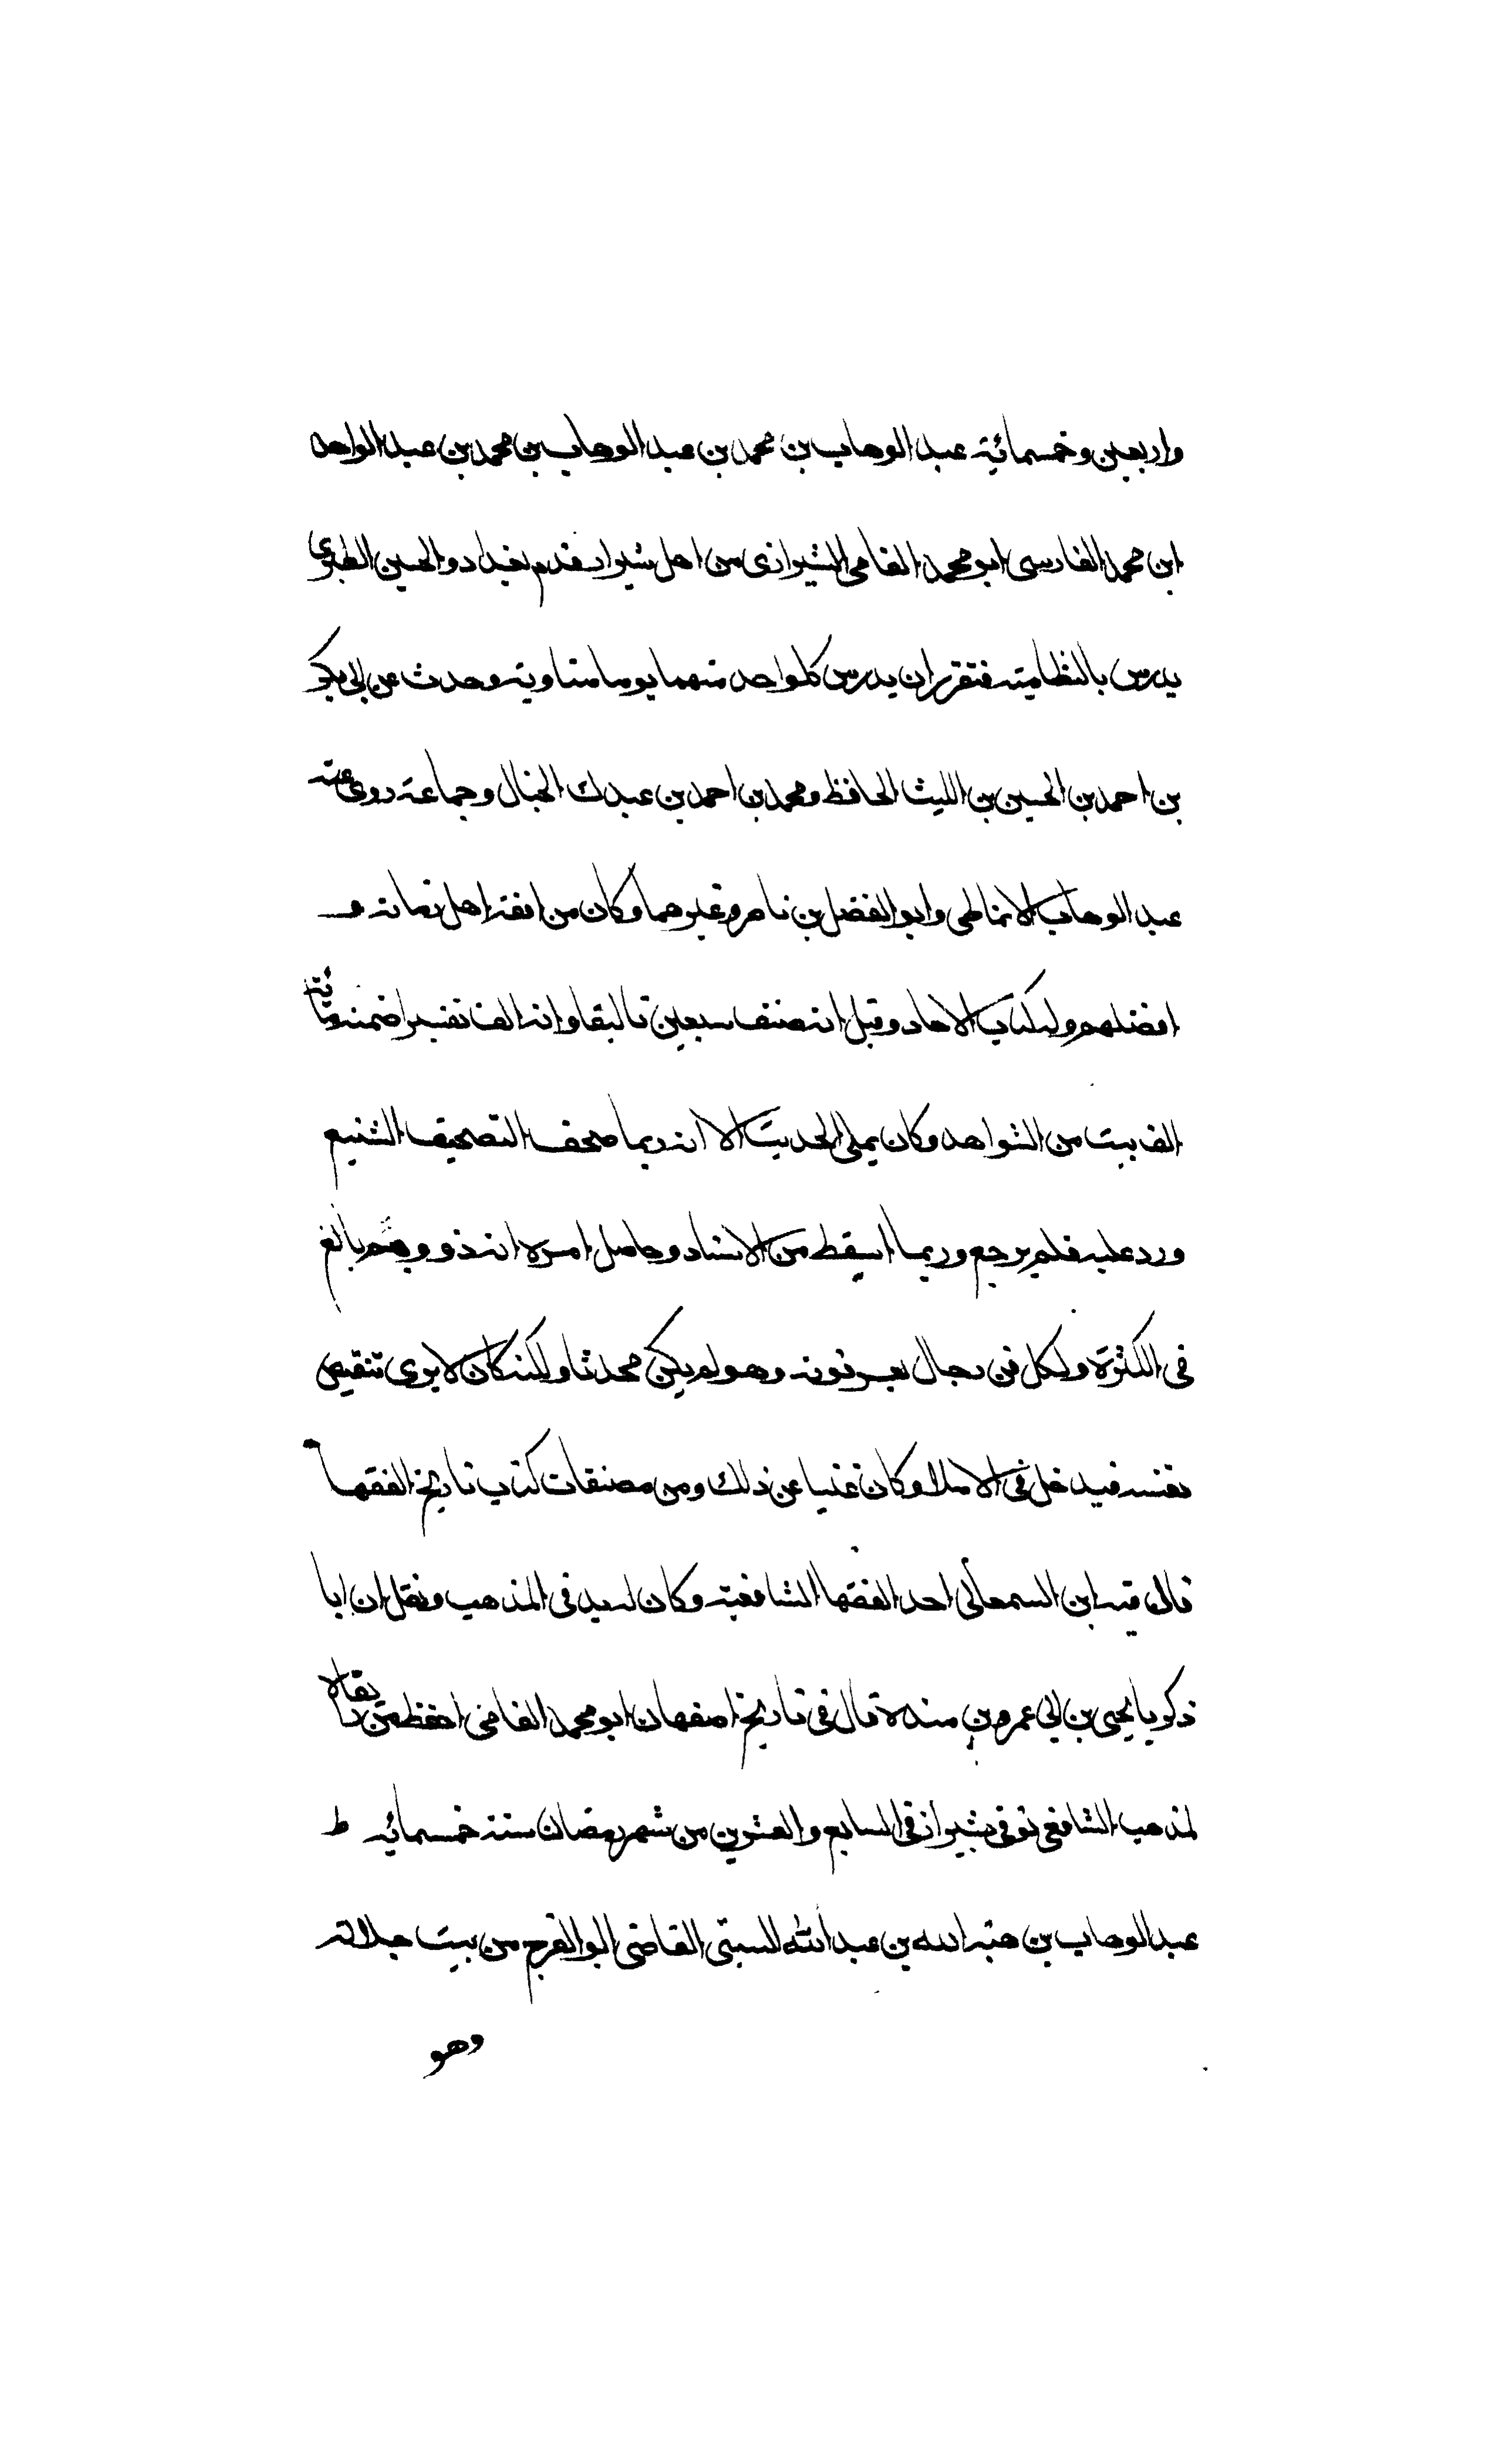 واربعين وخمسمائة عبد الوهاب بن محمد بن عبد الوهاب بن محمد بن عبد الواحد
ابن محمد الفارسى ابو محمد الفامى الشيرازى من اهل شيراز قدم بغداد والحسين الطبرى
يدرس بالنظامية فتقرر ان يدرس كلواحد منهما يوما متناوبة وحدث عن ابى بكر
بن احمد بن الحسين بن الليث الحافظ ومحمد بن احمد بن عبدك الحبال وجماعة روى عنه
عبد الوهاب الانماطى وابو الفضل بن ناصر وغيرهما وكان من افقه اهل زمانه و
افضلهم وله كتاب الاحاد وقيل انه صنف سبعين تاليفا وانه الف تفسيرا ضمنه مائة
الف بيت من الشواهد وكان يملى الحديث الا انه ربما صحف التصحيف الشنيع
ورد عليه فلم يرجع وربما اسقط من الاسناد وحاصل امره انه ذو وهم بالغ
فى الكثرة ولكل فن رجال يعرفونه وهو لم يكن محدثا ولكنه كان لا يرى تنقيص
نفسه فيدخل فى الاملا وكان غنيا عن ذلك ومن مصنفات كتاب تاريخ الفقها
قال فيه ابن السمعانى احد الفقها الشافعية وكان له يد فى المذهب ونقل ان ابا
زكريا يحيى بن ابى عمرو بن منده قال فى تاريخ اصفهان ابو محمد الفامى احفظ من رايناه
لمذهب الشافعى توفى بشيراز فى السابع والعشرين من شهر رمضان سنة خمسمائة ط
عبد الوهاب بن هبة الله بن عبد الله السبتى القاضى ابو الفرج من بيت جلالة
وهو